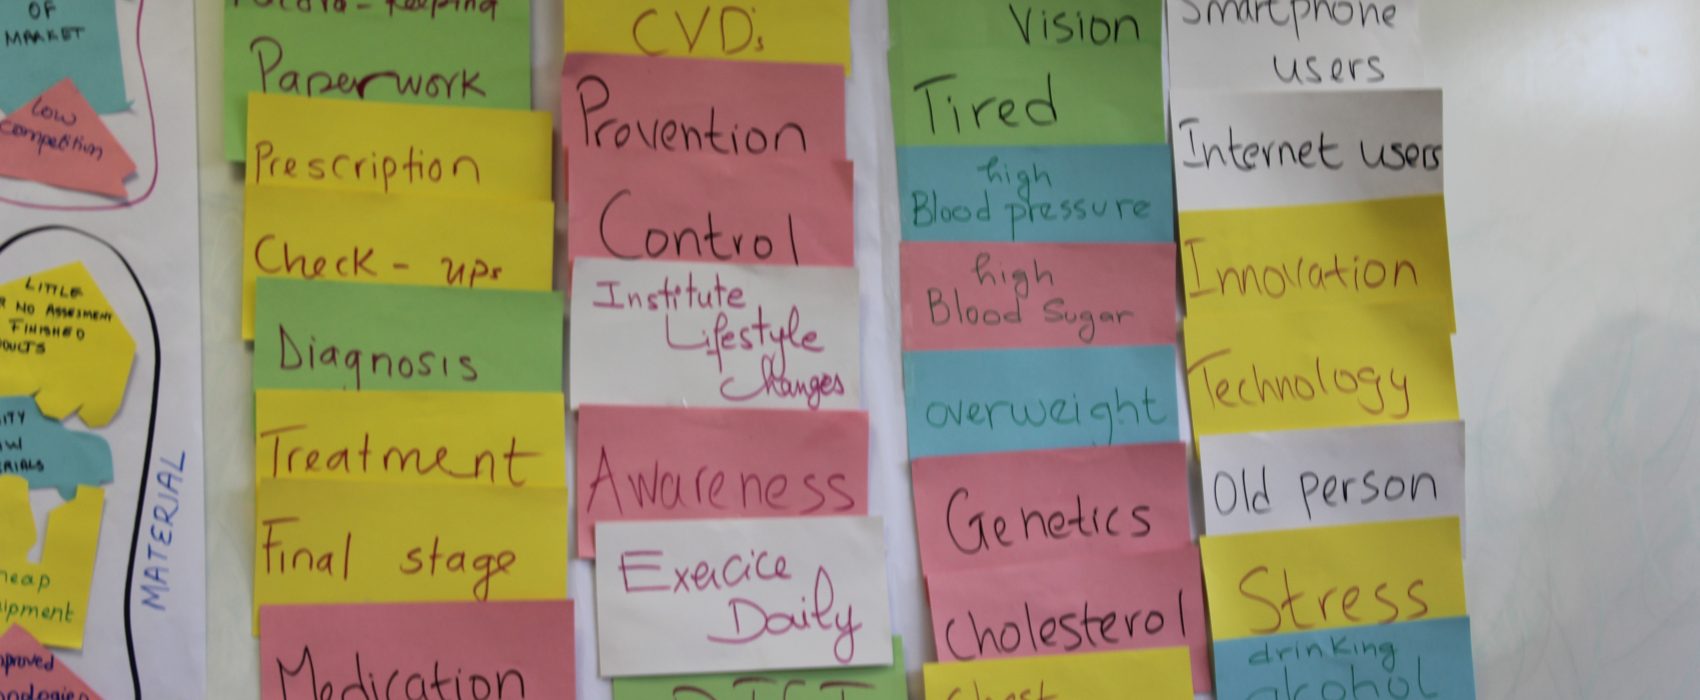 OF
MARKET
Low
competition
LITTLE
NO ASSESMENT
FINISHED
MATERIAL
Record-keeping
Paperwork
Prescription
Check-ups
Diagnosis
Treatment
Final stage
Medication
CVDs
Provention
Control
Institute
Lifestyle
Changes
Awareness
Exercice
Daily
Vision
Tired
high
Blood pressure
high
Blood Sugar
overweight
Genetics
cholesterol
Chest
Smartphone
users
Internet users
Innovation
Technology
Old person
Stress
drinking
alcohol